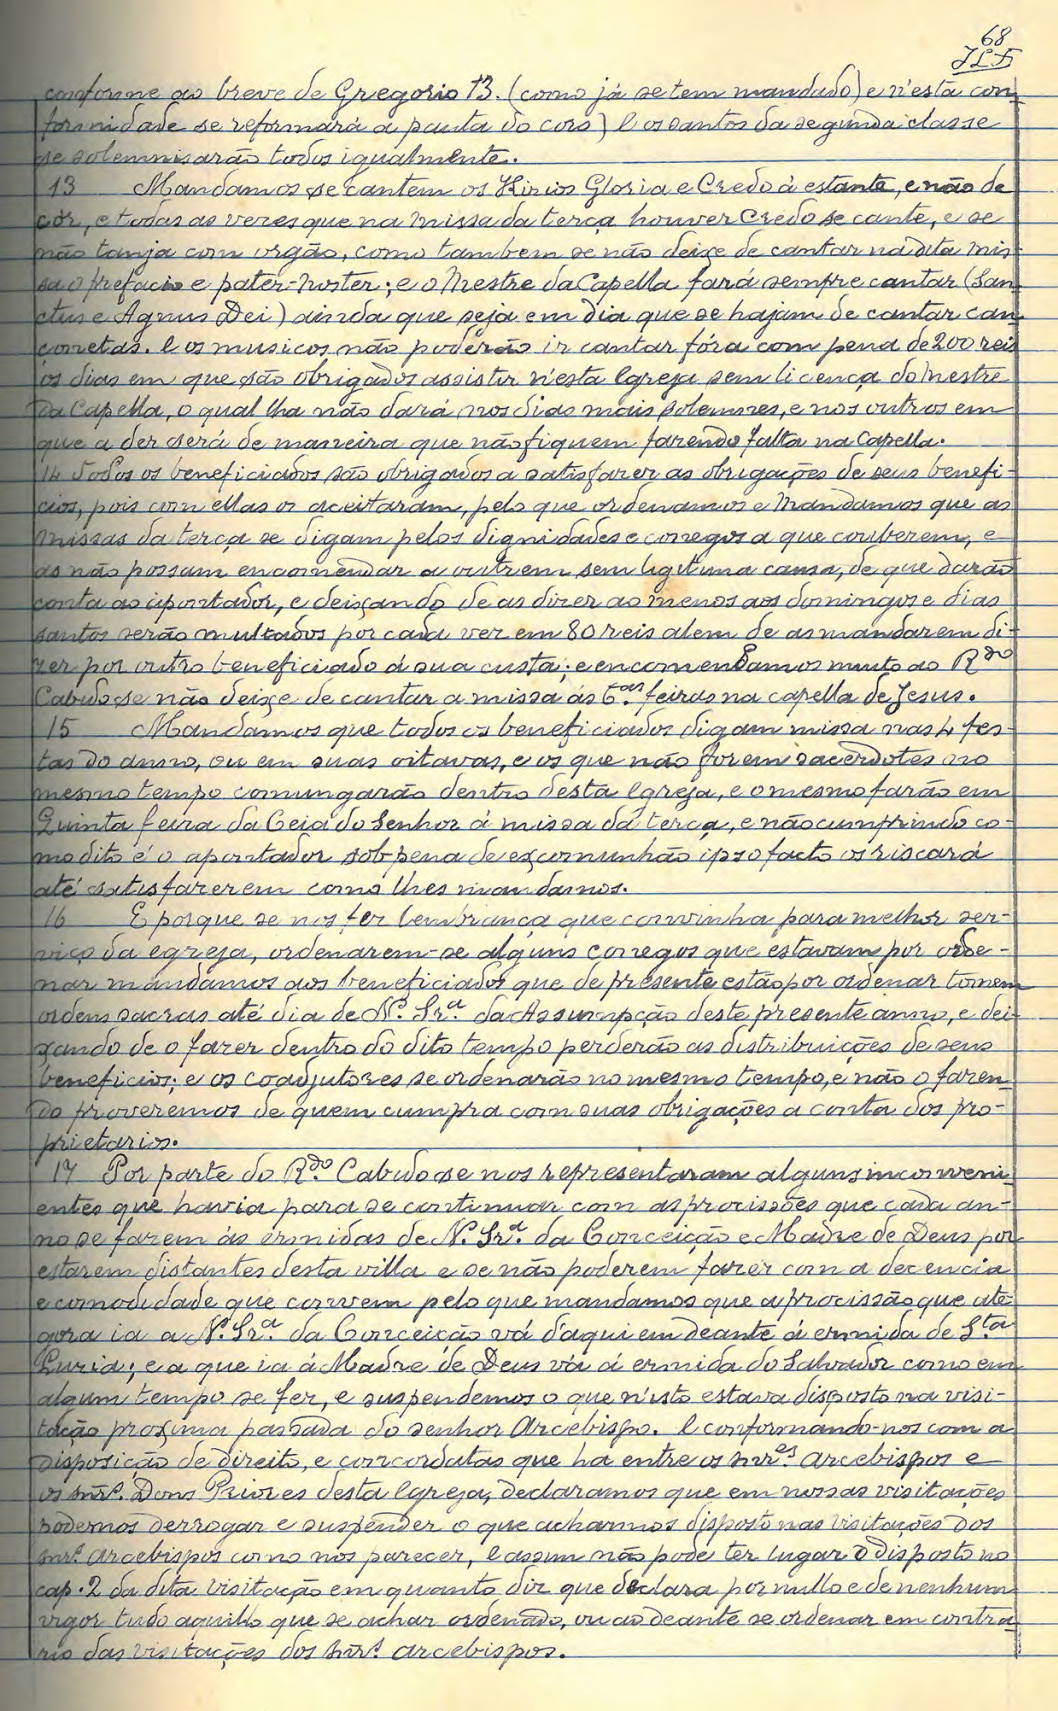 68
JLF
conforme ao breve de Gregorio 13. (como já se tem mandado) e n'esta con-
formidade se reformará a pauta do coro) e os santos da segunda classe
se solemnisarão todos igualmente.
13 Mandamos se cantem os Kirios Gloria e Credo à estante, e não de
cór, e todas as vezes que na missa da terça houver Credo se cante, e se
não tanja com orgão, como tambem se não deixe de cantar na dita mis-
sa o prefacio e pater-noster; e o Mestre da Capella fará sempre cantar (San-
ctus e Agnus Dei) ainda que seja em dia que se hajam de cantar can-
conetas. E os musicos não poderão ir cantar fóra com pena de 200 reis
os dias em que são obrigados assistir n'esta Egreja sem licença do Mestre
da Capella, o qual lha não dará nos dias mais solemnes, e nos outros em
que a der será de maneira que não fiquem fazendo falta na Capella.
14 Todos os beneficiados são obrigados a satisfazer as obrigações de seus benefi-
cios, pois com ellas os aceitaram, pelo que ordenamos e Mandamos que as
missas da terça se digam pelos dignidades e conegos a que couberem, e
as não possam encomendar a outrem sem ligitima causa, de que darão
conta ao apontador, e deixando de as dizer ao menos aos domingos e dias
santos serão multados por cada vez em 80 reis alem de as mandarem di-
zer por outro beneficiado á sua custa; e encomendamos muito ao Rdo
Cabido se não deixe de cantar a missa ás 6.as feiras na capella de Jesus.
15 Mandamos que todos os beneficiados digam missa nas 4 fes-
tas do anno, ou em suas oitavas, e os que não forem sacerdotes no
mesmo tempo comungarão dentro desta Egreja, e o mesmo farão em
Quinta feira da Ceia do Senhor á missa da terça, e não cumprindo co-
mo dito é o apontador sob pena de excomunhão ipso facto os riscará
até satisfazerem como lhes mandamos.
16 E porque se nos fez lembrança que convinha para melhor ser-
viço da egreja, ordenarem-se alguns conegos que estavam por orde-
nar mandamos aos beneficiados que de presente estão por ordenar tomem
ordens sacras até dia de N.ª Sr.ª da Assumpção deste presente anno, e dei-
xando de o fazer dentro do dito tempo perderão as distribuições de seus
beneficios; e os coadjutores se ordenarão no mesmo tempo, e não o fazen-
do proveremos de quem cumpra com suas obrigações a conta dos pro-
prietarios.
17 Por parte do R.do Cabido se nos representaram alguns inconveni-
entes que havia para se continuar com as procissões que cada an-
no se fazem ás ermidas de N.ª Sr.ª da Conceição e Madre de Deus por
estarem distantes desta villa e se não poderem fazer com a decencia
e comodidade que convem pelo que mandamos que a procissão que até-
gora ia a N.ª Sr.ª da Conceição vá d'aqui em deante á ermida de S.ta
Luzia; e a que ia á Madre de Deus vá á ermida do Salvador como em
algum tempo se fez, e suspendemos o que n'isto estava disposto na visi-
tação proxima passada do senhor Arcebispo. E conformando-nos com a
disposição de direito, e concordatas que ha entre os snr.es arcebispos e
os snr.s Dons Priores desta Egreja, declaramos que em nossas visitações
podemos derrogar e suspender o que acharmos disposto nas visitações dos
snr.s arcebispos como nos parecer, e assim não pode ter lugar o disposto no
cap. 2 da dita visitação em quanto diz que declara por nullo e de nenhum
vigor tudo aquillo que se achar ordenado, ou ao deante se ordenar em contra-
rio das visitações dos snr.s arcebispos.